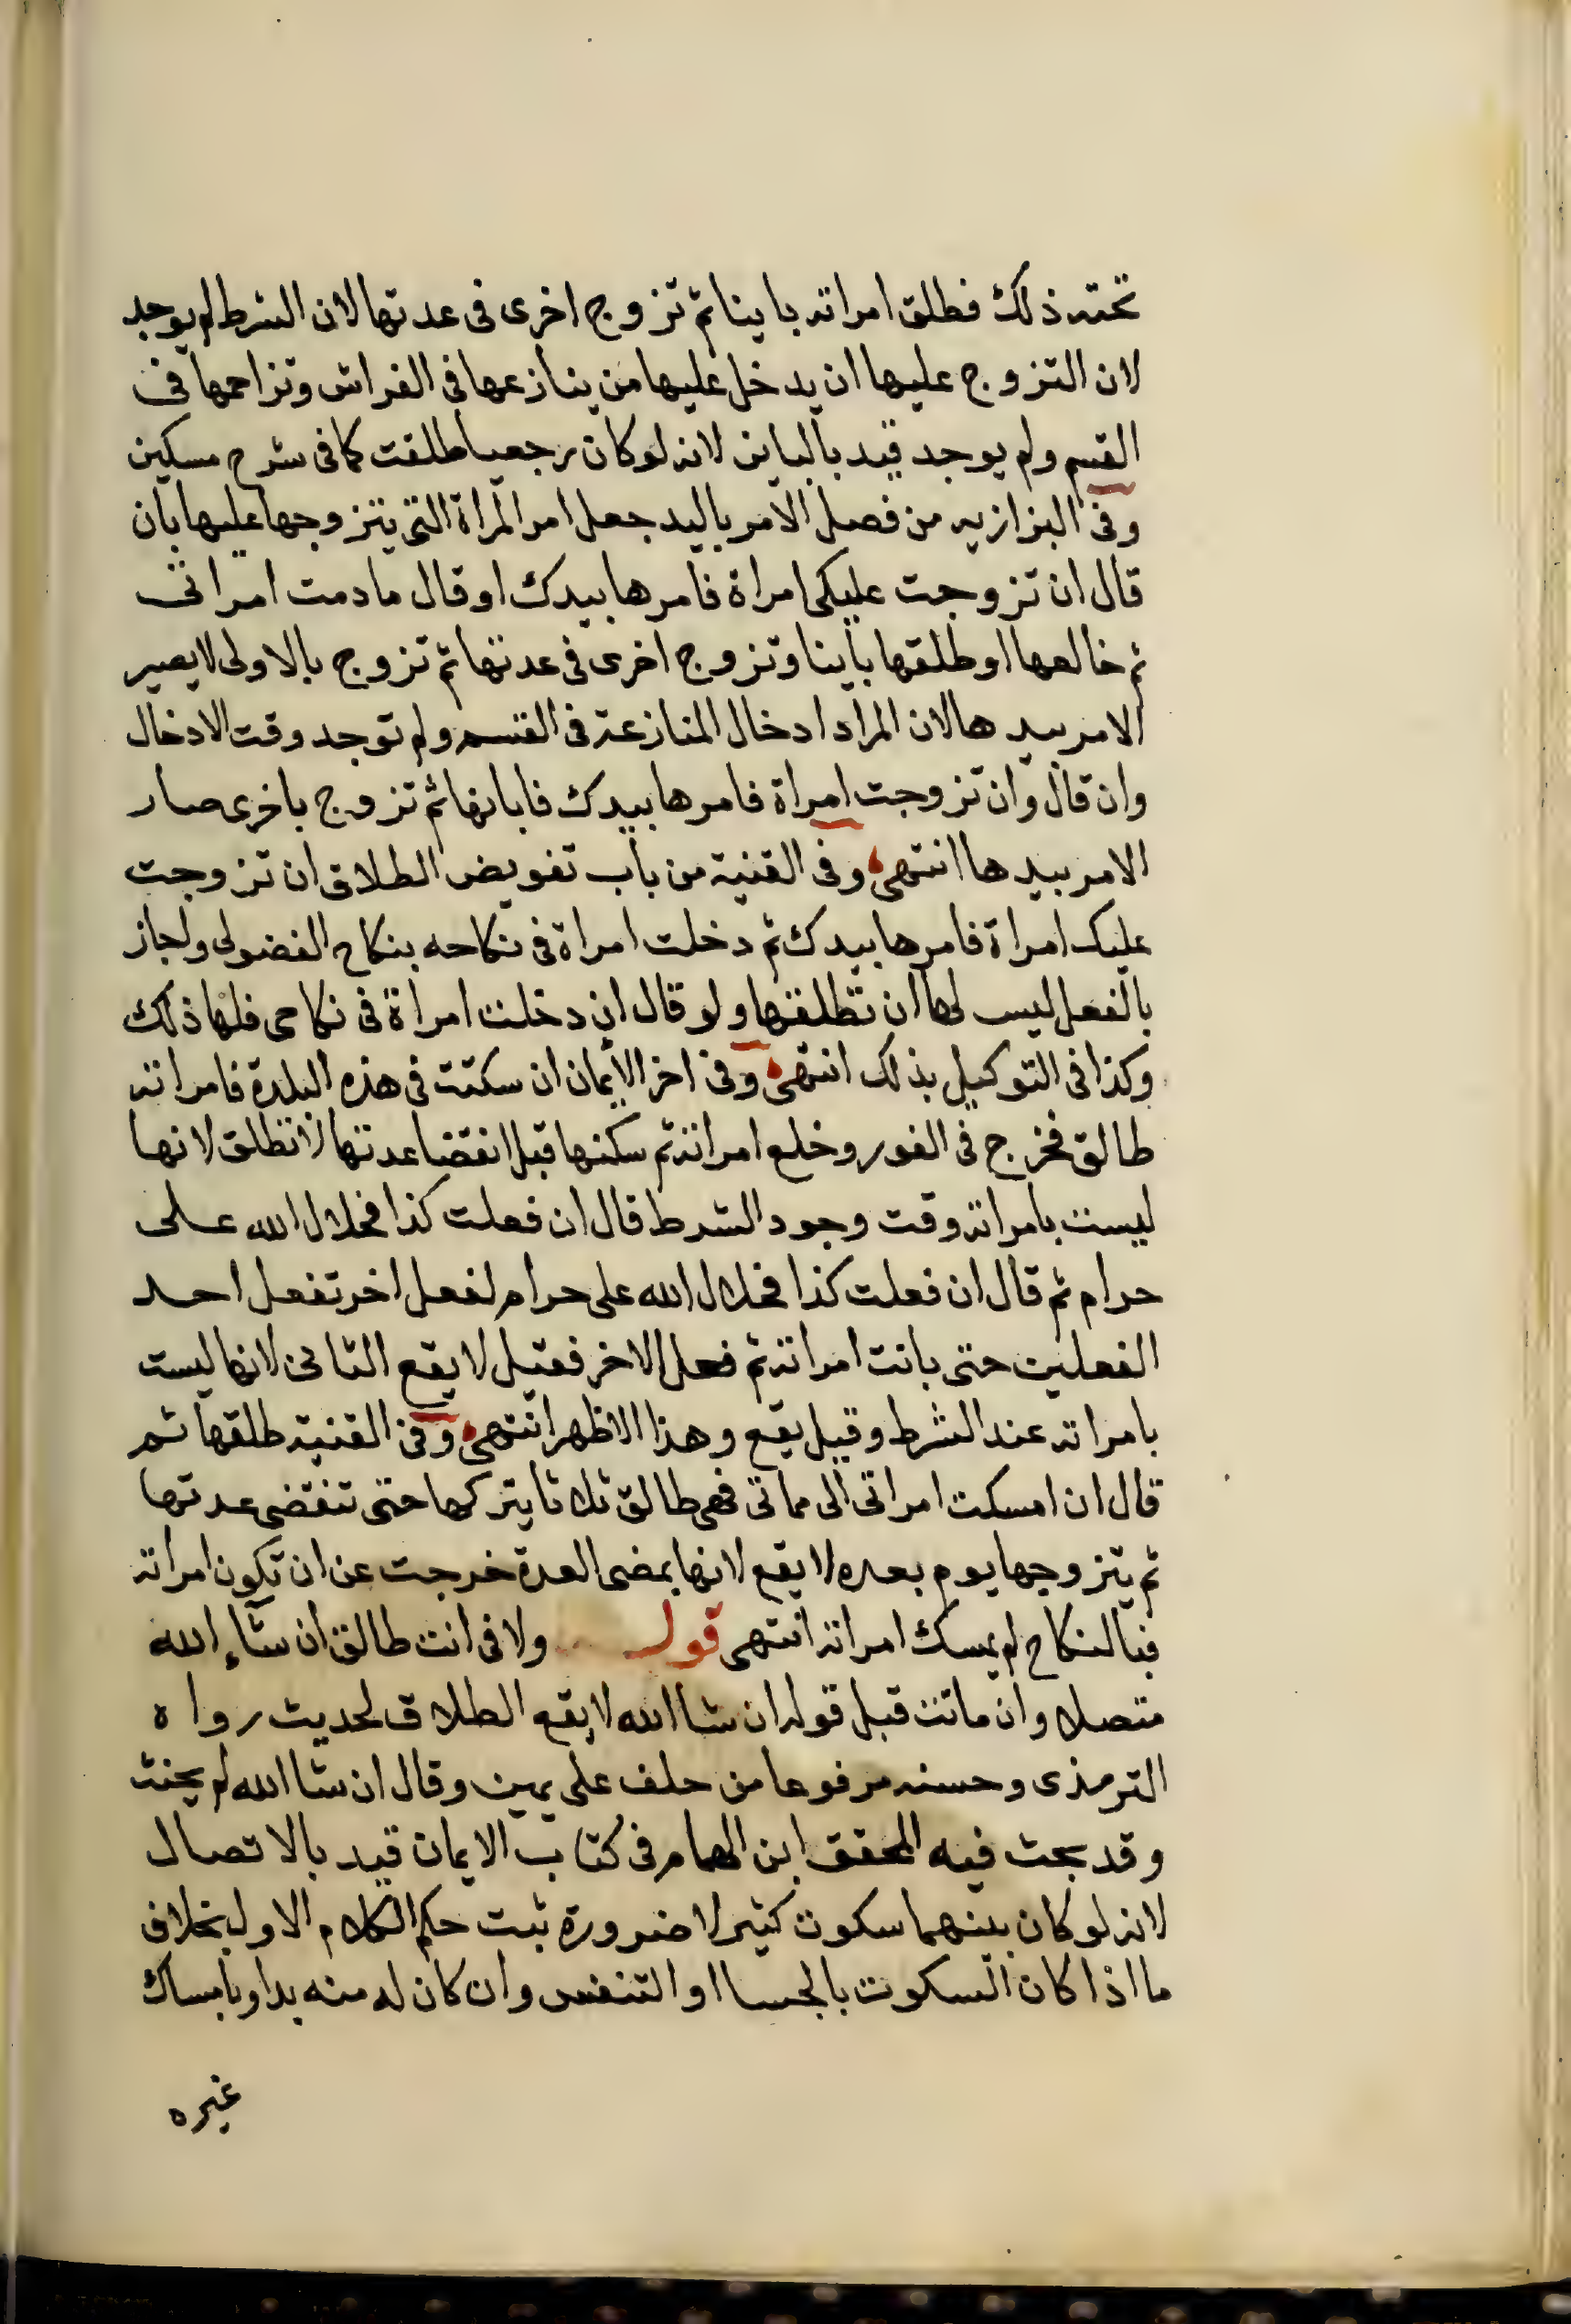 تحته ذلك فطلق امراته باينا ثم تزوج اخرى فى عدتها لان الشرط لم يوجد
لان التزوج عليها ان يدخل عليها من ينازعها فى الفراش وتزاحمها فى
القسم ولم يوجد قيد بالباين لانه لو كان رجعيا طلقت كما فى شرح مسكين
وفى البزازيه من فصل الامر باليد جعل امر المراة التى يتزوجها عليها بان
قال ان تزوجت عليكى امراة فامرها بيدك او قال ما دمت امراتى
ثم خالعها او طلقها باينا وتزوج اخرى فى عدتها ثم تزوج بالاولى لا يصير
الامر بيدها لان المراد ادخال المنازعة فى القسم ولم توجد وقت الادخال
وان قال وان تزوجت امراة فامرها بيدك فابانها ثم تزوج باخرى صار
الامر بيدها انتهى وفى القنية من باب تفويض الطلاق ان تزوجت
عليك امراة فامرها بيدك ثم دخلت امراة فى نكاحه بنكاح الفضولى واجاز
بالفعل ليس لها ان تطلقها ولو قال ان دخلت امراة فى نكاحى فلها ذلك
وكذا فى التوكيل بذلك انتهى وفى اخر الايمان ان سكتت فى هذه البلدة فامراته
طالق فخرج فى الفور وخلع امراته ثم سكنها قبل انقضا عدتها لا تطلق لانها
ليست بامراته وقت وجود الشرط قال ان فعلت كذا فحلال الله على
حرام ثم قال ان فعلت كذا فحلال الله على حرام لفعل اخر تفعل احد
الفعلين حتى بانت امراته ثم فعل الاخر فقيل لا يقع الثانى لانها ليست
بامراته عند الشرط وقيل يقع وهذا الاظهر انتهى وفى القنية طلقها ثم
قال ان امسكت امراتى الى مماتى فهى طالق ثلاثا يتركها حتى تنقضى عدتها
ثم يتزوجها يوم بعده لا يقع لانها بمضى العدة خرجت عن ان تكون امراته
فبالنكاح لم يمسك امراته انتهى قوله ولا فى انت طالق ان شاء الله
متصلا وان ماتت قبل قوله ان شا الله لا يقع الطلاق لحديث رواه
الترمذى وحسنه مرفوعا من حلف على يمين وقال ان شا الله لم يحنث
وقد بحث فيه المحقق ابن الهمام فى كتاب الايمان قيد بالاتصال
لانه لو كان بينهما سكوت كثير لا ضرورة ثبت حكم الكلام الاول بخلاف
ما اذا كان السكوت بالجسا او التنفس وان كان له منه بد او بامساك
غيره